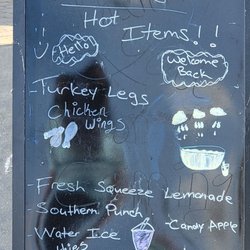 Hot
Items!!
Hello
Welcome
Back
-Turkey Legs
Chicken
Wings
-Fresh Squeeze Lemonade
-Southern Punch
-Candy Apple
-Water Ice